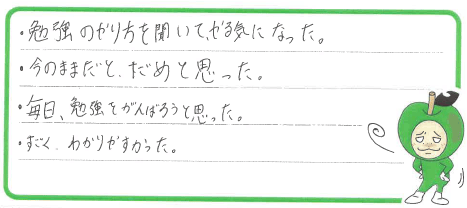 ・勉強のやり方を聞いて、やる気になった。
・今のままだと、だめと思った。
・毎日、勉強をがんばろうと思った。
・すごく、わかりやすかった。